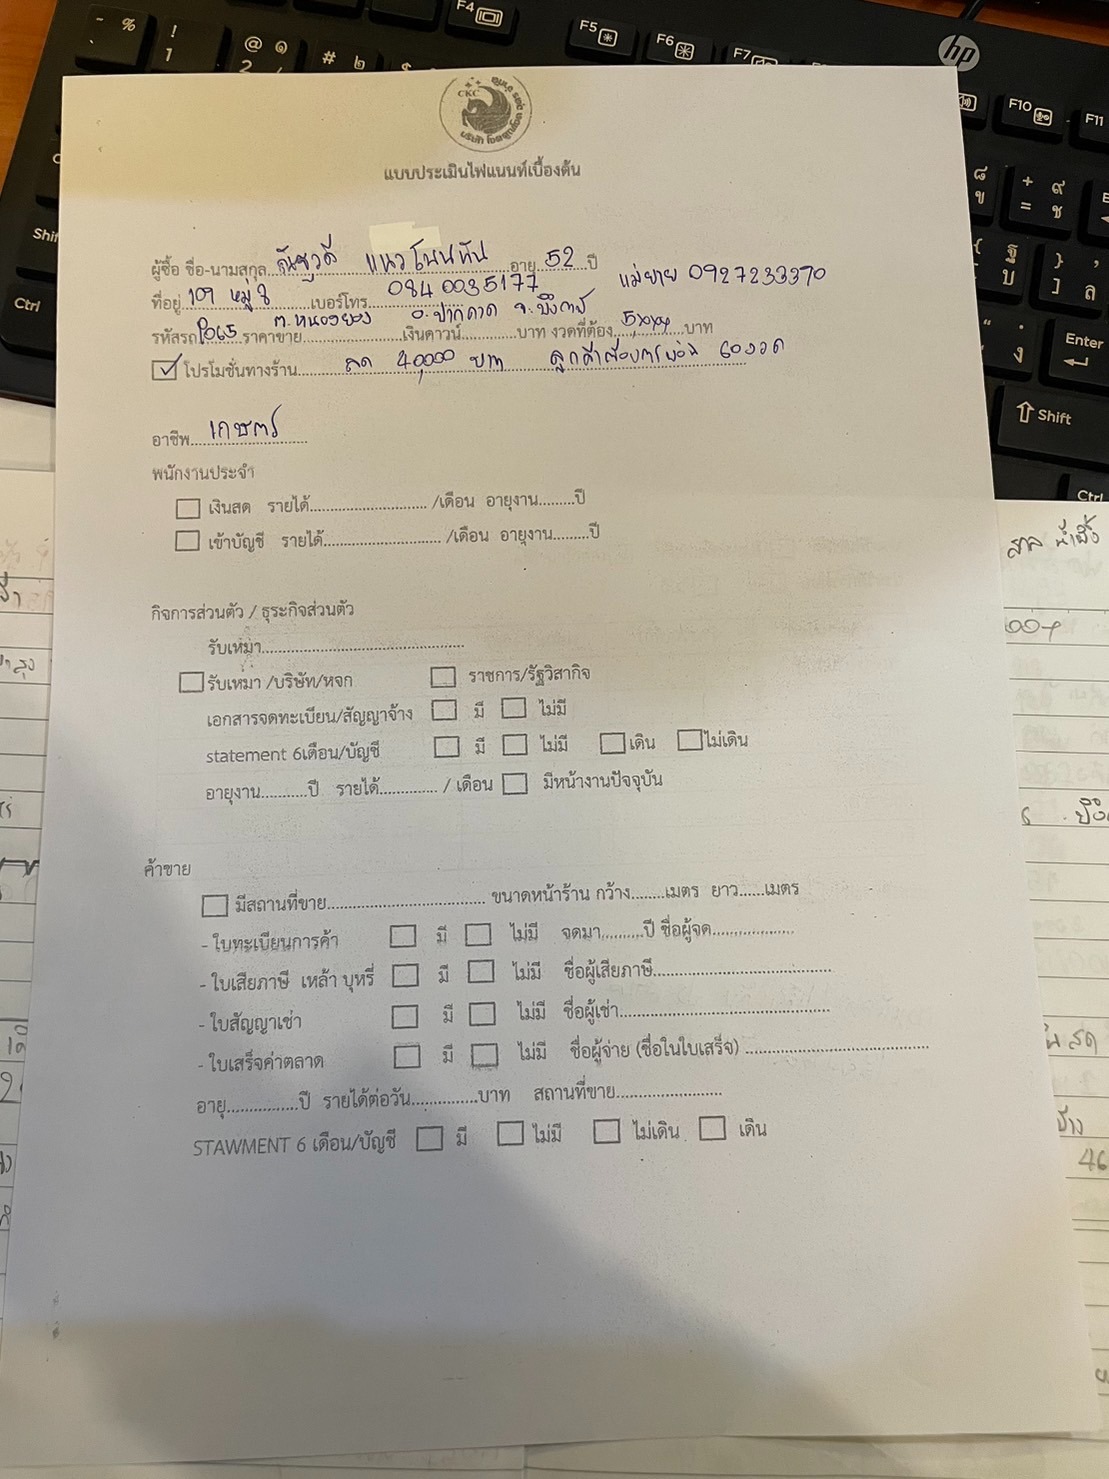 CKC
แบบประเมินไฟแนนท์เบื้องต้น
ผู้ซื้อ ชื่อ-นามสกุล อายุ 52 ปี
ที่อยู่ 109 หมู่ 8 เบอร์โทร 0840035177 แม่ยาย 0927233370
ต.หนองยอง อ.ปากคาด จ.บึงกาฬ
รหัสรถ P065 ราคาขาย เงินดาวน์ บาท งวดที่ต้อง 5xxx บาท
โปรโมชั่นทางร้าน ลด 40,000 บาท ลูกค้าต้องการผ่อน 60 งวด
อาชีพ เกษตร
พนักงานประจำ
เงินสด รายได้ /เดือน อายุงาน ปี
เข้าบัญชี รายได้ /เดือน อายุงาน ปี
กิจการส่วนตัว / ธุระกิจส่วนตัว
รับเหมา
รับเหมา /บริษัท/หจก ราชการ/รัฐวิสากิจ
เอกสารจดทะเบียน/สัญญาจ้าง มี ไม่มี
statement 6เดือน/บัญชี มี ไม่มี เดิน ไม่เดิน
อายุงาน ปี รายได้ / เดือน มีหน้างานปัจจุบัน
ค้าขาย
มีสถานที่ขาย ขนาดหน้าร้าน กว้าง เมตร ยาว เมตร
- ใบทะเบียนการค้า มี ไม่มี จดมา ปี ชื่อผู้จด
- ใบเสียภาษี เหล้า บุหรี่ มี ไม่มี ชื่อผู้เสียภาษี
- ใบสัญญาเช่า มี ไม่มี ชื่อผู้เช่า
- ใบเสร็จค่าตลาด มี ไม่มี ชื่อผู้จ่าย (ชื่อในใบเสร็จ)
อายุ ปี รายได้ต่อวัน บาท สถานที่ขาย
STAWMENT 6 เดือน/บัญชี มี ไม่มี ไม่เดิน เดิน
hp
F4
F5
F6
F7
F10
F11
Shift
Ctrl
Enter
Shift
Ctrl
46